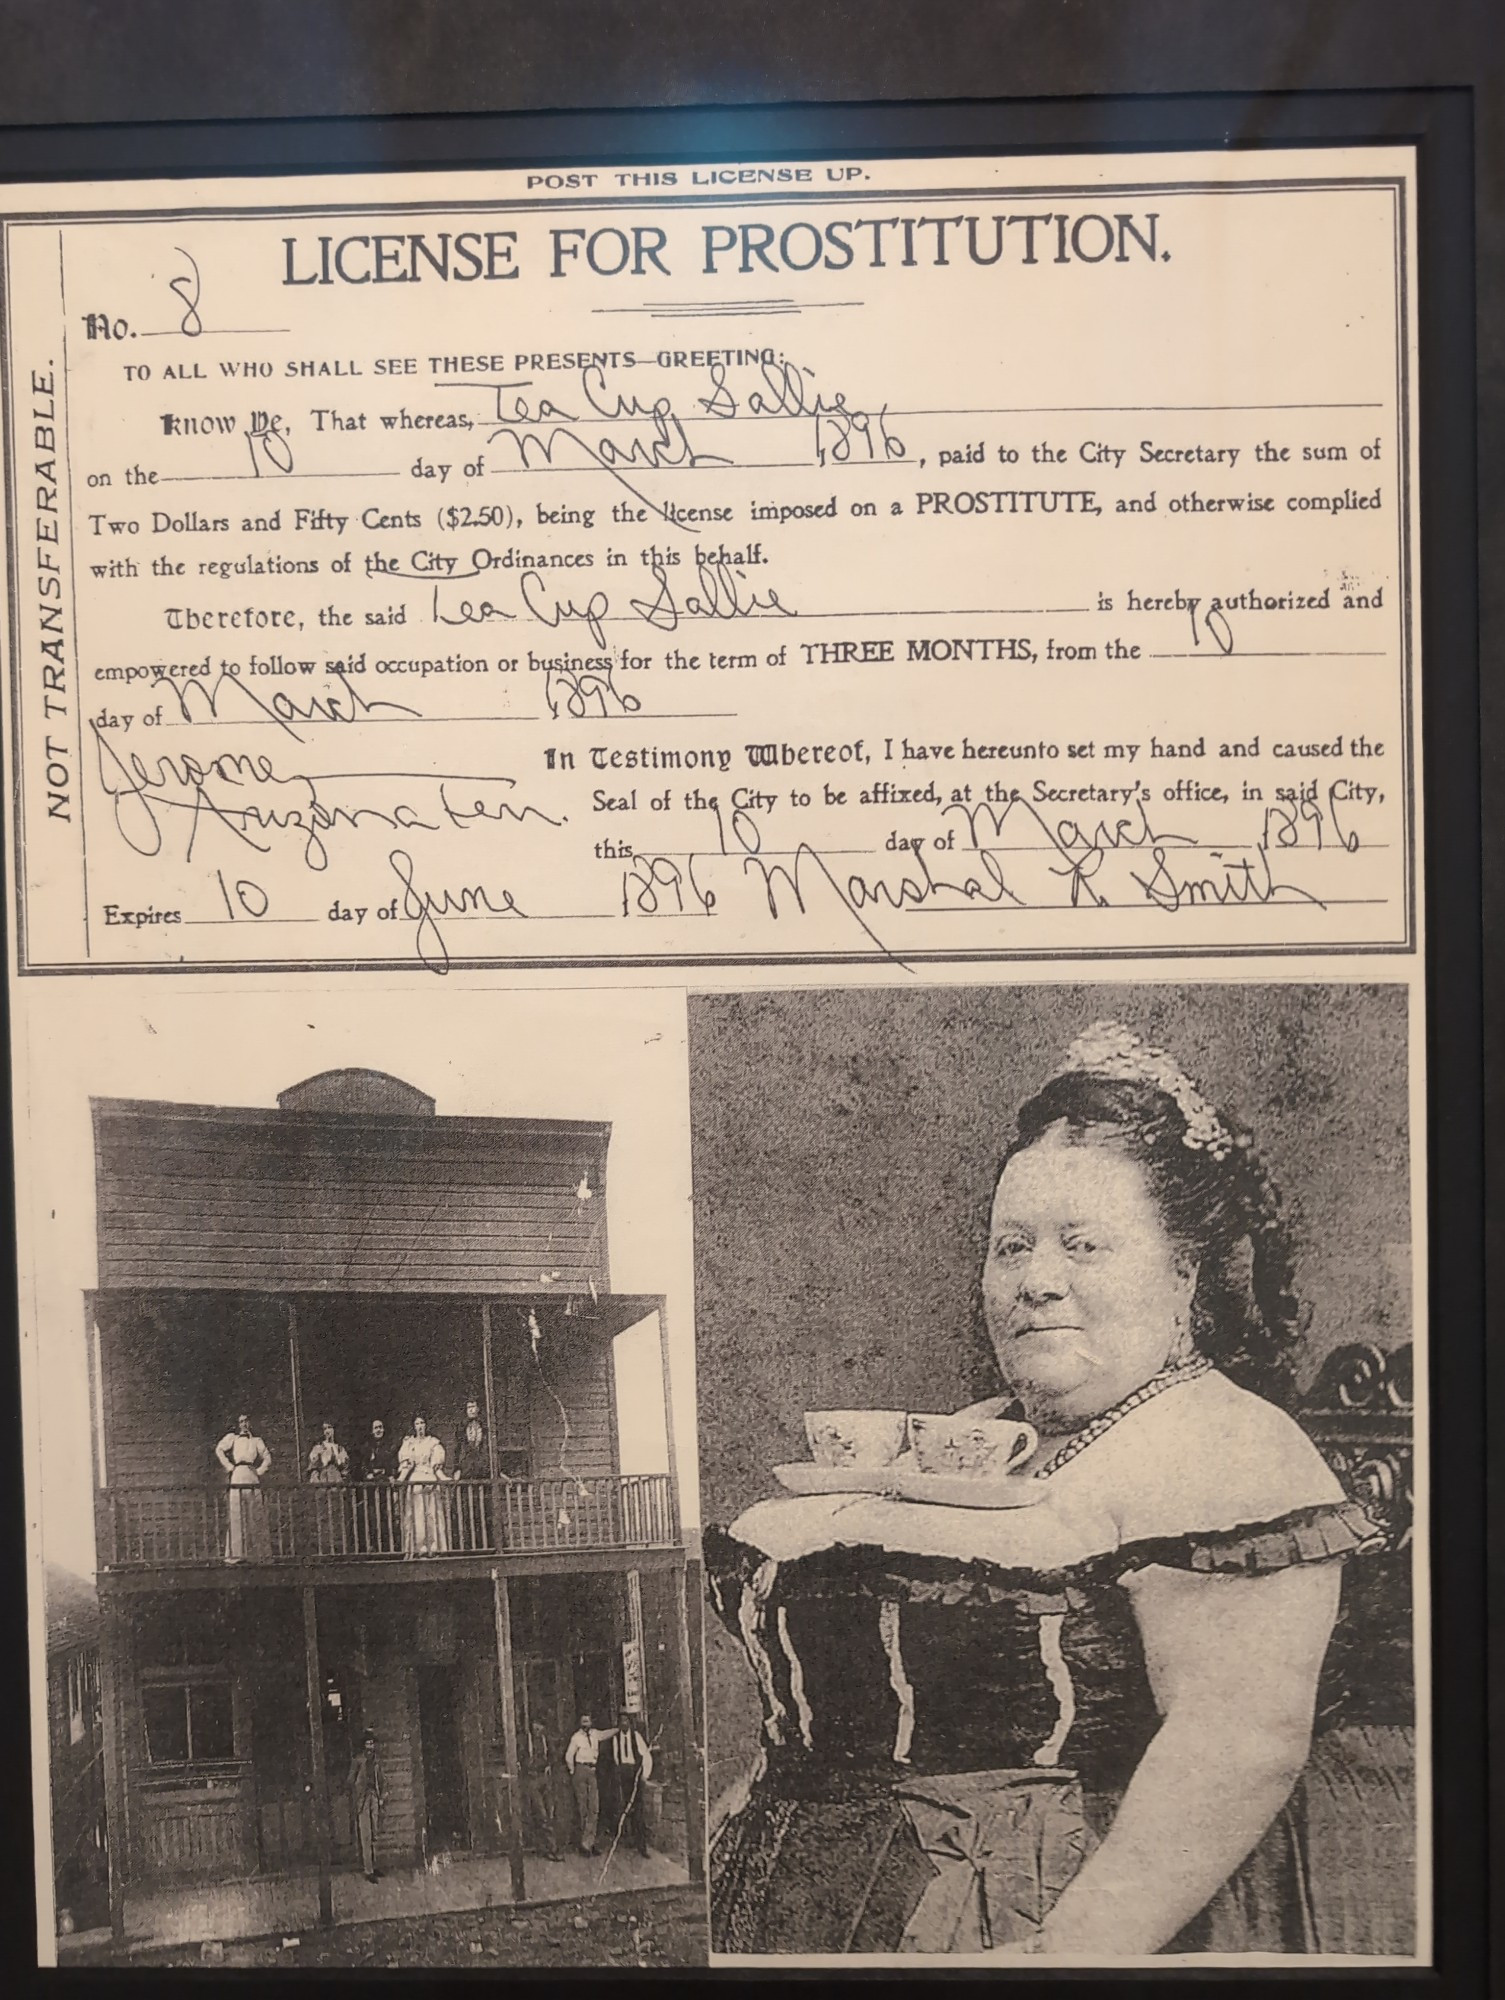 POST THIS LICENSE UP.
NOT TRANSFERABLE.
LICENSE FOR PROSTITUTION.
No. 8
TO ALL WHO SHALL SEE THESE PRESENTS—GREETING:
Know Ye, That whereas, Tea Cup Sallie
on the 10 day of March 1896, paid to the City Secretary the sum of
Two Dollars and Fifty Cents ($2.50), being the license imposed on a PROSTITUTE, and otherwise complied
with the regulations of the City Ordinances in this behalf.
Therefore, the said Tea Cup Sallie is hereby authorized and
empowered to follow said occupation or business for the term of THREE MONTHS, from the 10
day of March 1896
Jerome,
Arizona Terr.
In Testimony Whereof, I have hereunto set my hand and caused the
Seal of the City to be affixed, at the Secretary's office, in said City,
this 10 day of March 1896
Expires 10 day of June 1896 Marshal R. Smith